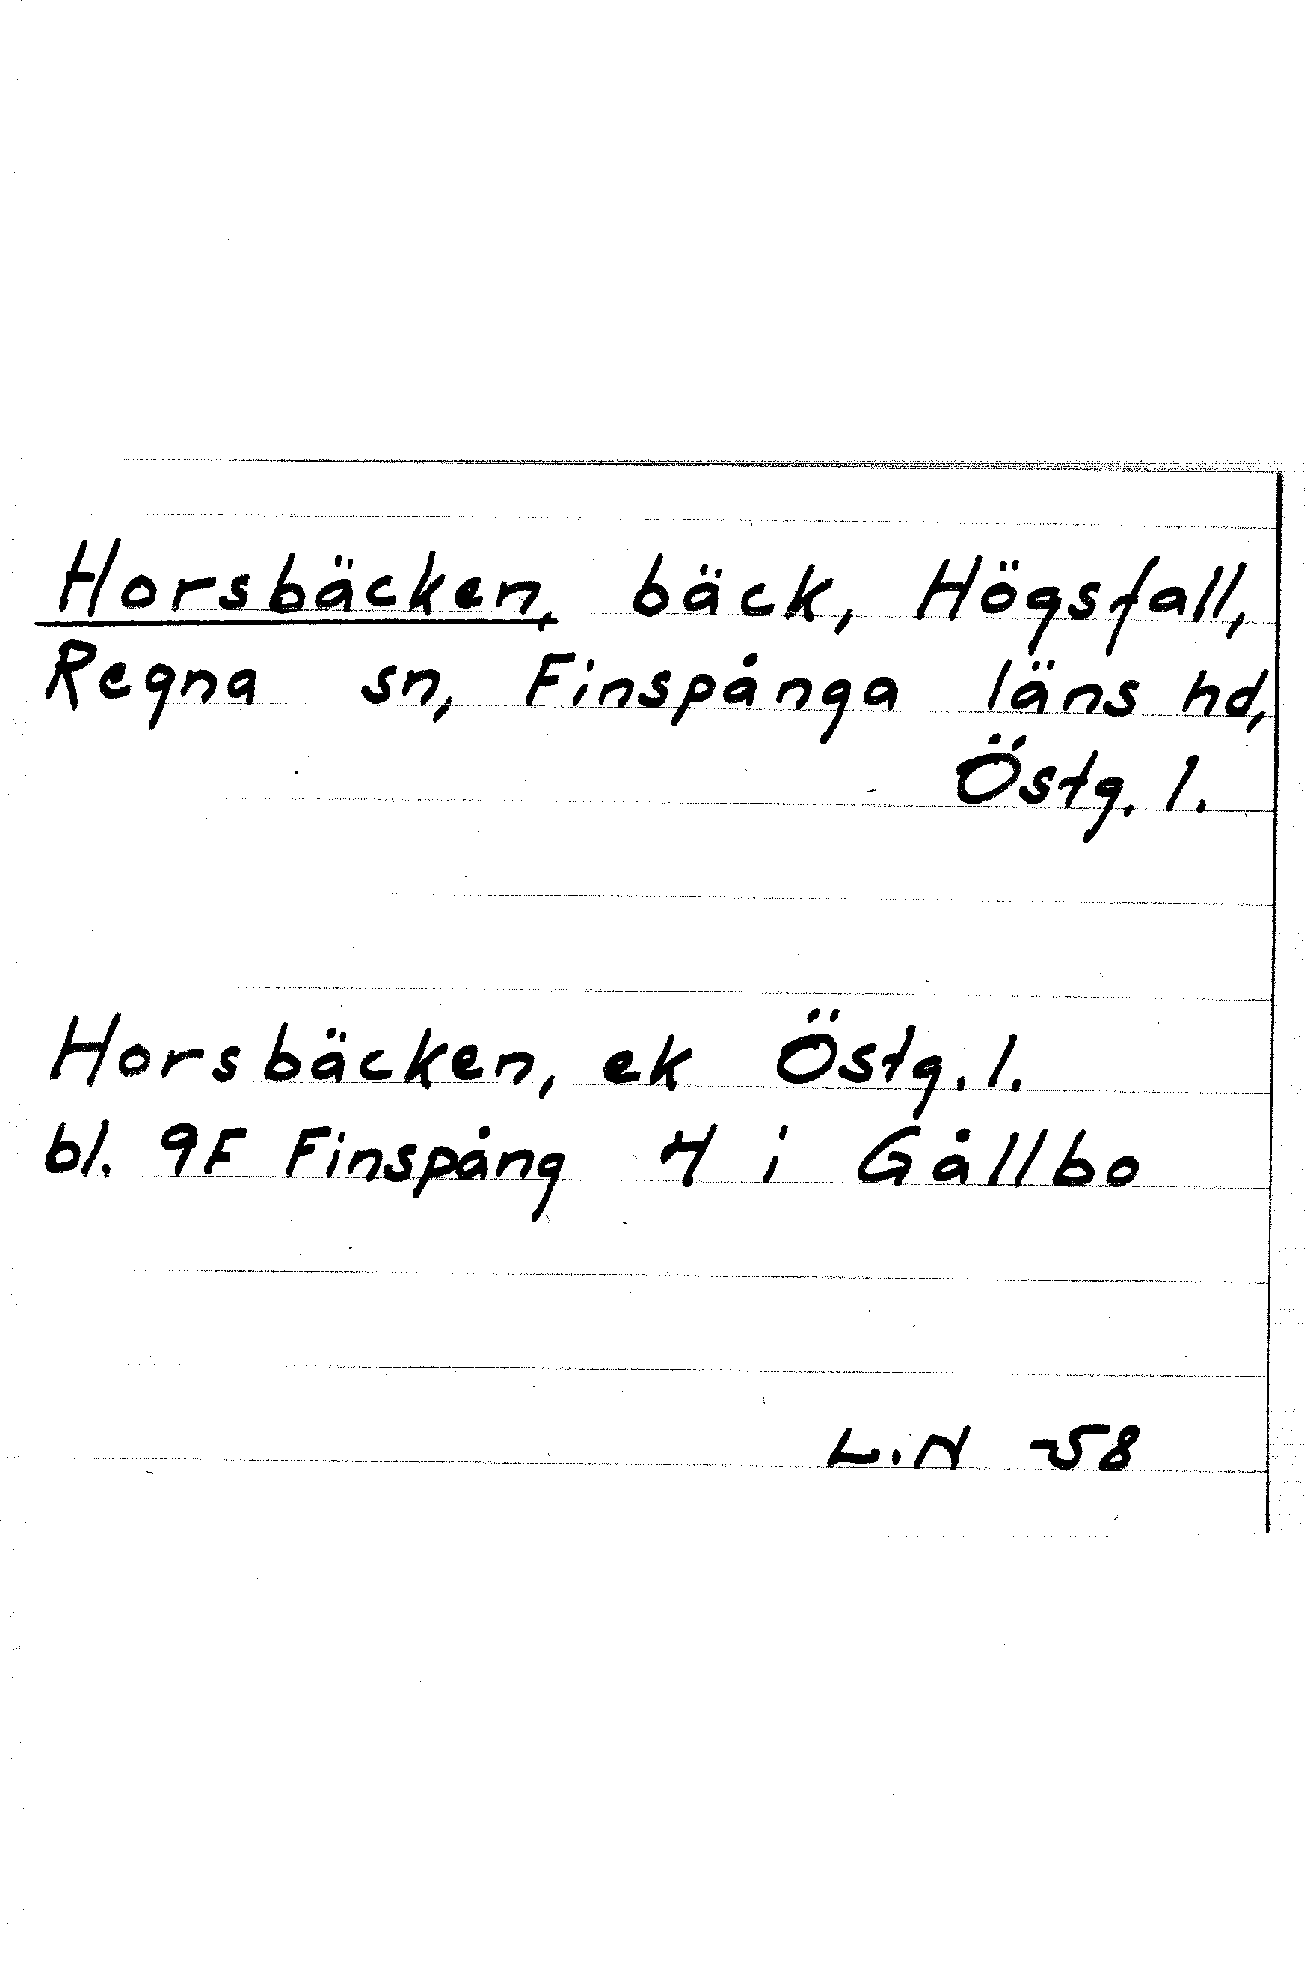 Horsbäcken, bäck, Högsfall,
Regna sn, Finspånga läns hd,
Östg. l.
Horsbäcken, ek Östg. l.
bl. 9F Finspång 4 i Gållbo
L.N -58